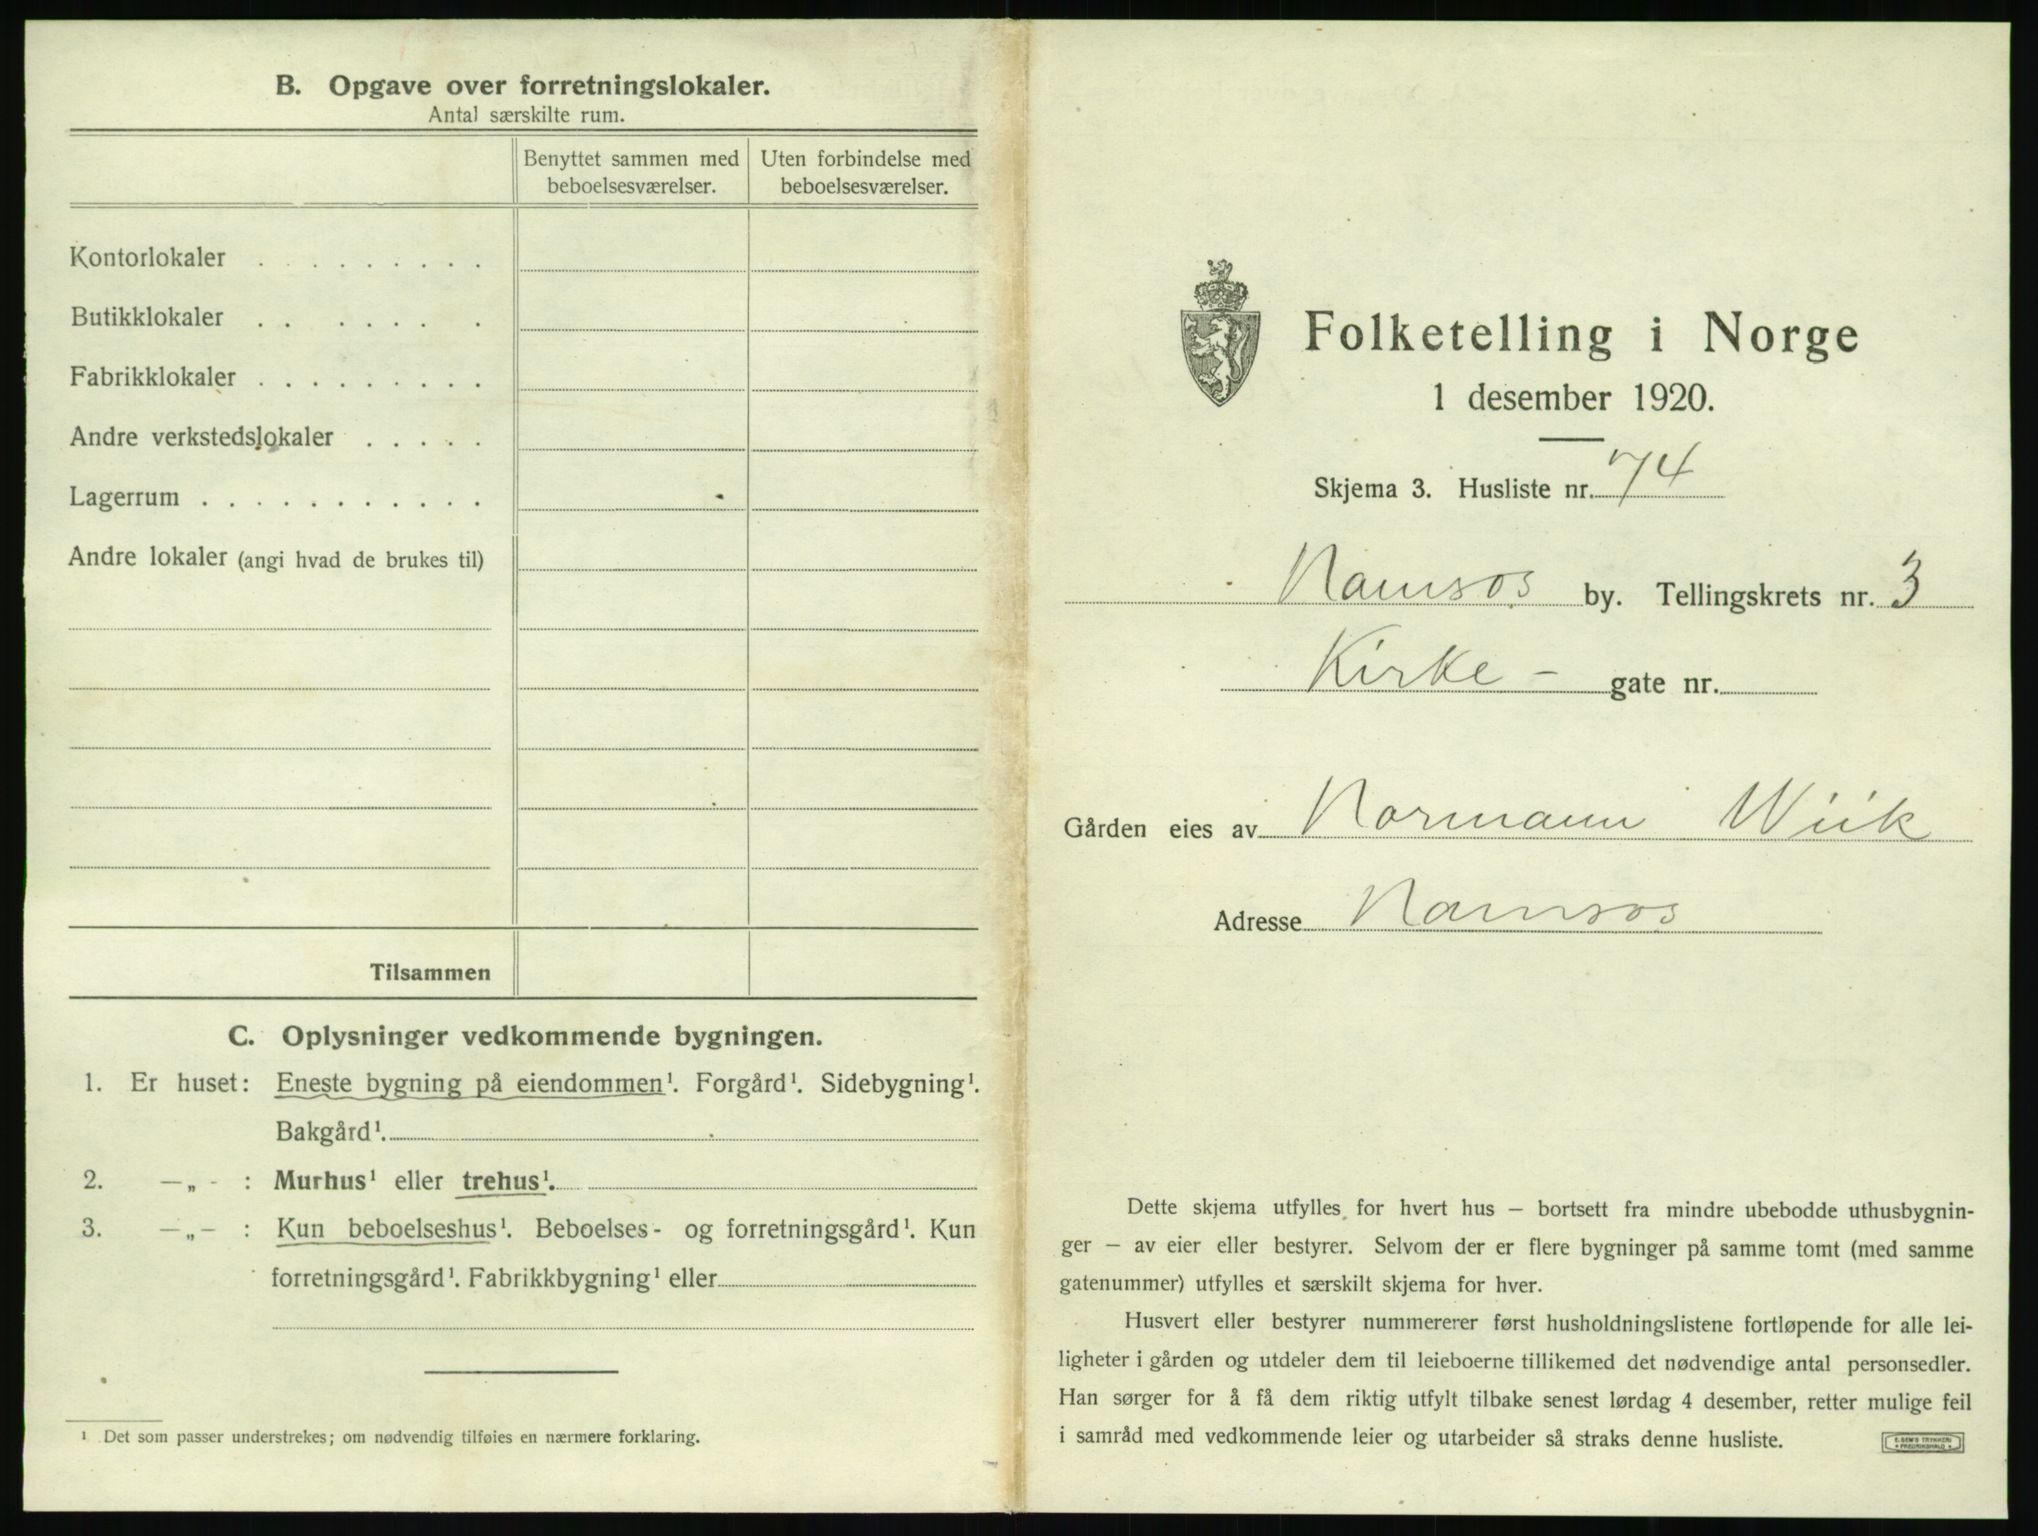 B. Opgave over forretningslokaler.
Antal særskilte rum.
Benyttet sammen med beboelsesværelser.
Uten forbindelse med beboelsesværelser.
Kontorlokaler . . . . . . . . .
Butikklokaler . . . . . . . .
Fabrikklokaler . . . . . . . . .
Andre verkstedslokaler . . . . .
Lagerrum . . . . . . . . . . .
Andre lokaler (angi hvad de brukes til)
Tilsammen
C. Oplysninger vedkommende bygningen.
1. Er huset: Eneste bygning på eiendommen¹. Forgård¹. Sidebygning¹.
Bakgård¹.
2. —„- : Murhus¹ eller trehus¹.
3. —„- : Kun beboelseshus¹. Beboelses- og forretningsgård¹. Kun
forretningsgård¹. Fabrikkbygning¹ eller
¹ Det som passer understrekes; om nødvendig tilføies en nærmere forklaring.
Folketelling i Norge
1 desember 1920.
Skjema 3. Husliste nr. 74
Namsos by. Tellingskrets nr. 3
Kirke - gate nr.
Gården eies av Normann Wiik
Adresse Namsos
Dette skjema utfylles for hvert hus — bortsett fra mindre ubebodde uthusbygnin-
ger — av eier eller bestyrer. Selvom der er flere bygninger på samme tomt (med samme
gatenummer) utfylles et særskilt skjema for hver.
Husvert eller bestyrer nummererer først husholdningslistene fortløpende for alle lei-
ligheter i gården og utdeler dem til leieboerne tillikemed det nødvendige antal personsedler.
Han sørger for å få dem riktig utfylt tilbake senest lørdag 4 desember, retter mulige feil
i samråd med vedkommende leier og utarbeider så straks denne husliste.
E. SEM'S TRYKKERI
FREDRIKSHALD